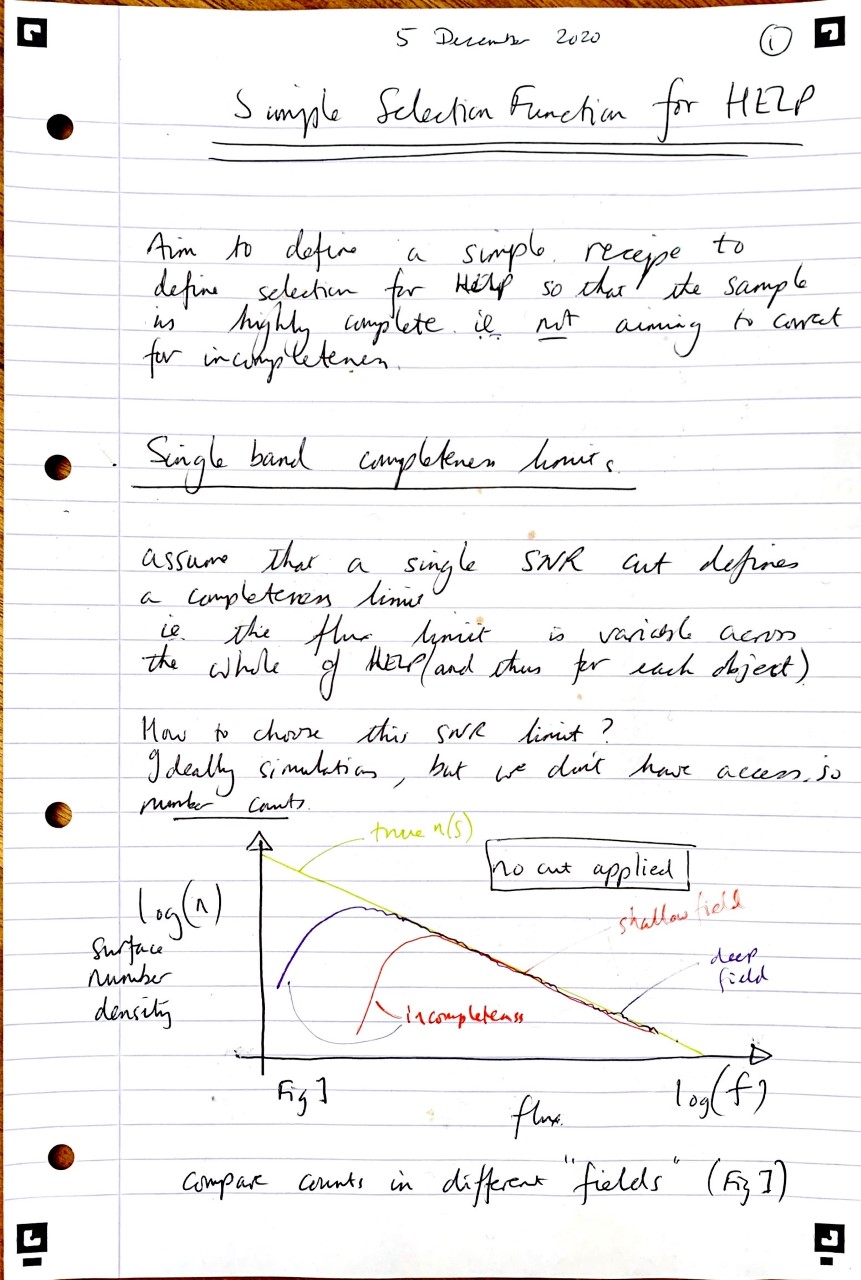 5 December 2020
1
Simple Selection Function for HELP
Aim to define a simple recipe to
define selection for HELP so that the sample
is highly complete ie not aiming to correct
for incompleteness.
Single band completeness limits
assume that a single SNR cut defines
a completeness limit
ie. the flux limit is variable across
the whole of HELP (and thus for each object)
How to choose this SNR limit?
Ideally simulations, but we don't have access, so
number counts.
true n(s)
no cut applied
log(n)
shallow field
surface
number
density
deep
field
incompleteness
Fig 1
log(f)
flux.
compare counts in different "fields" (Fig 1)